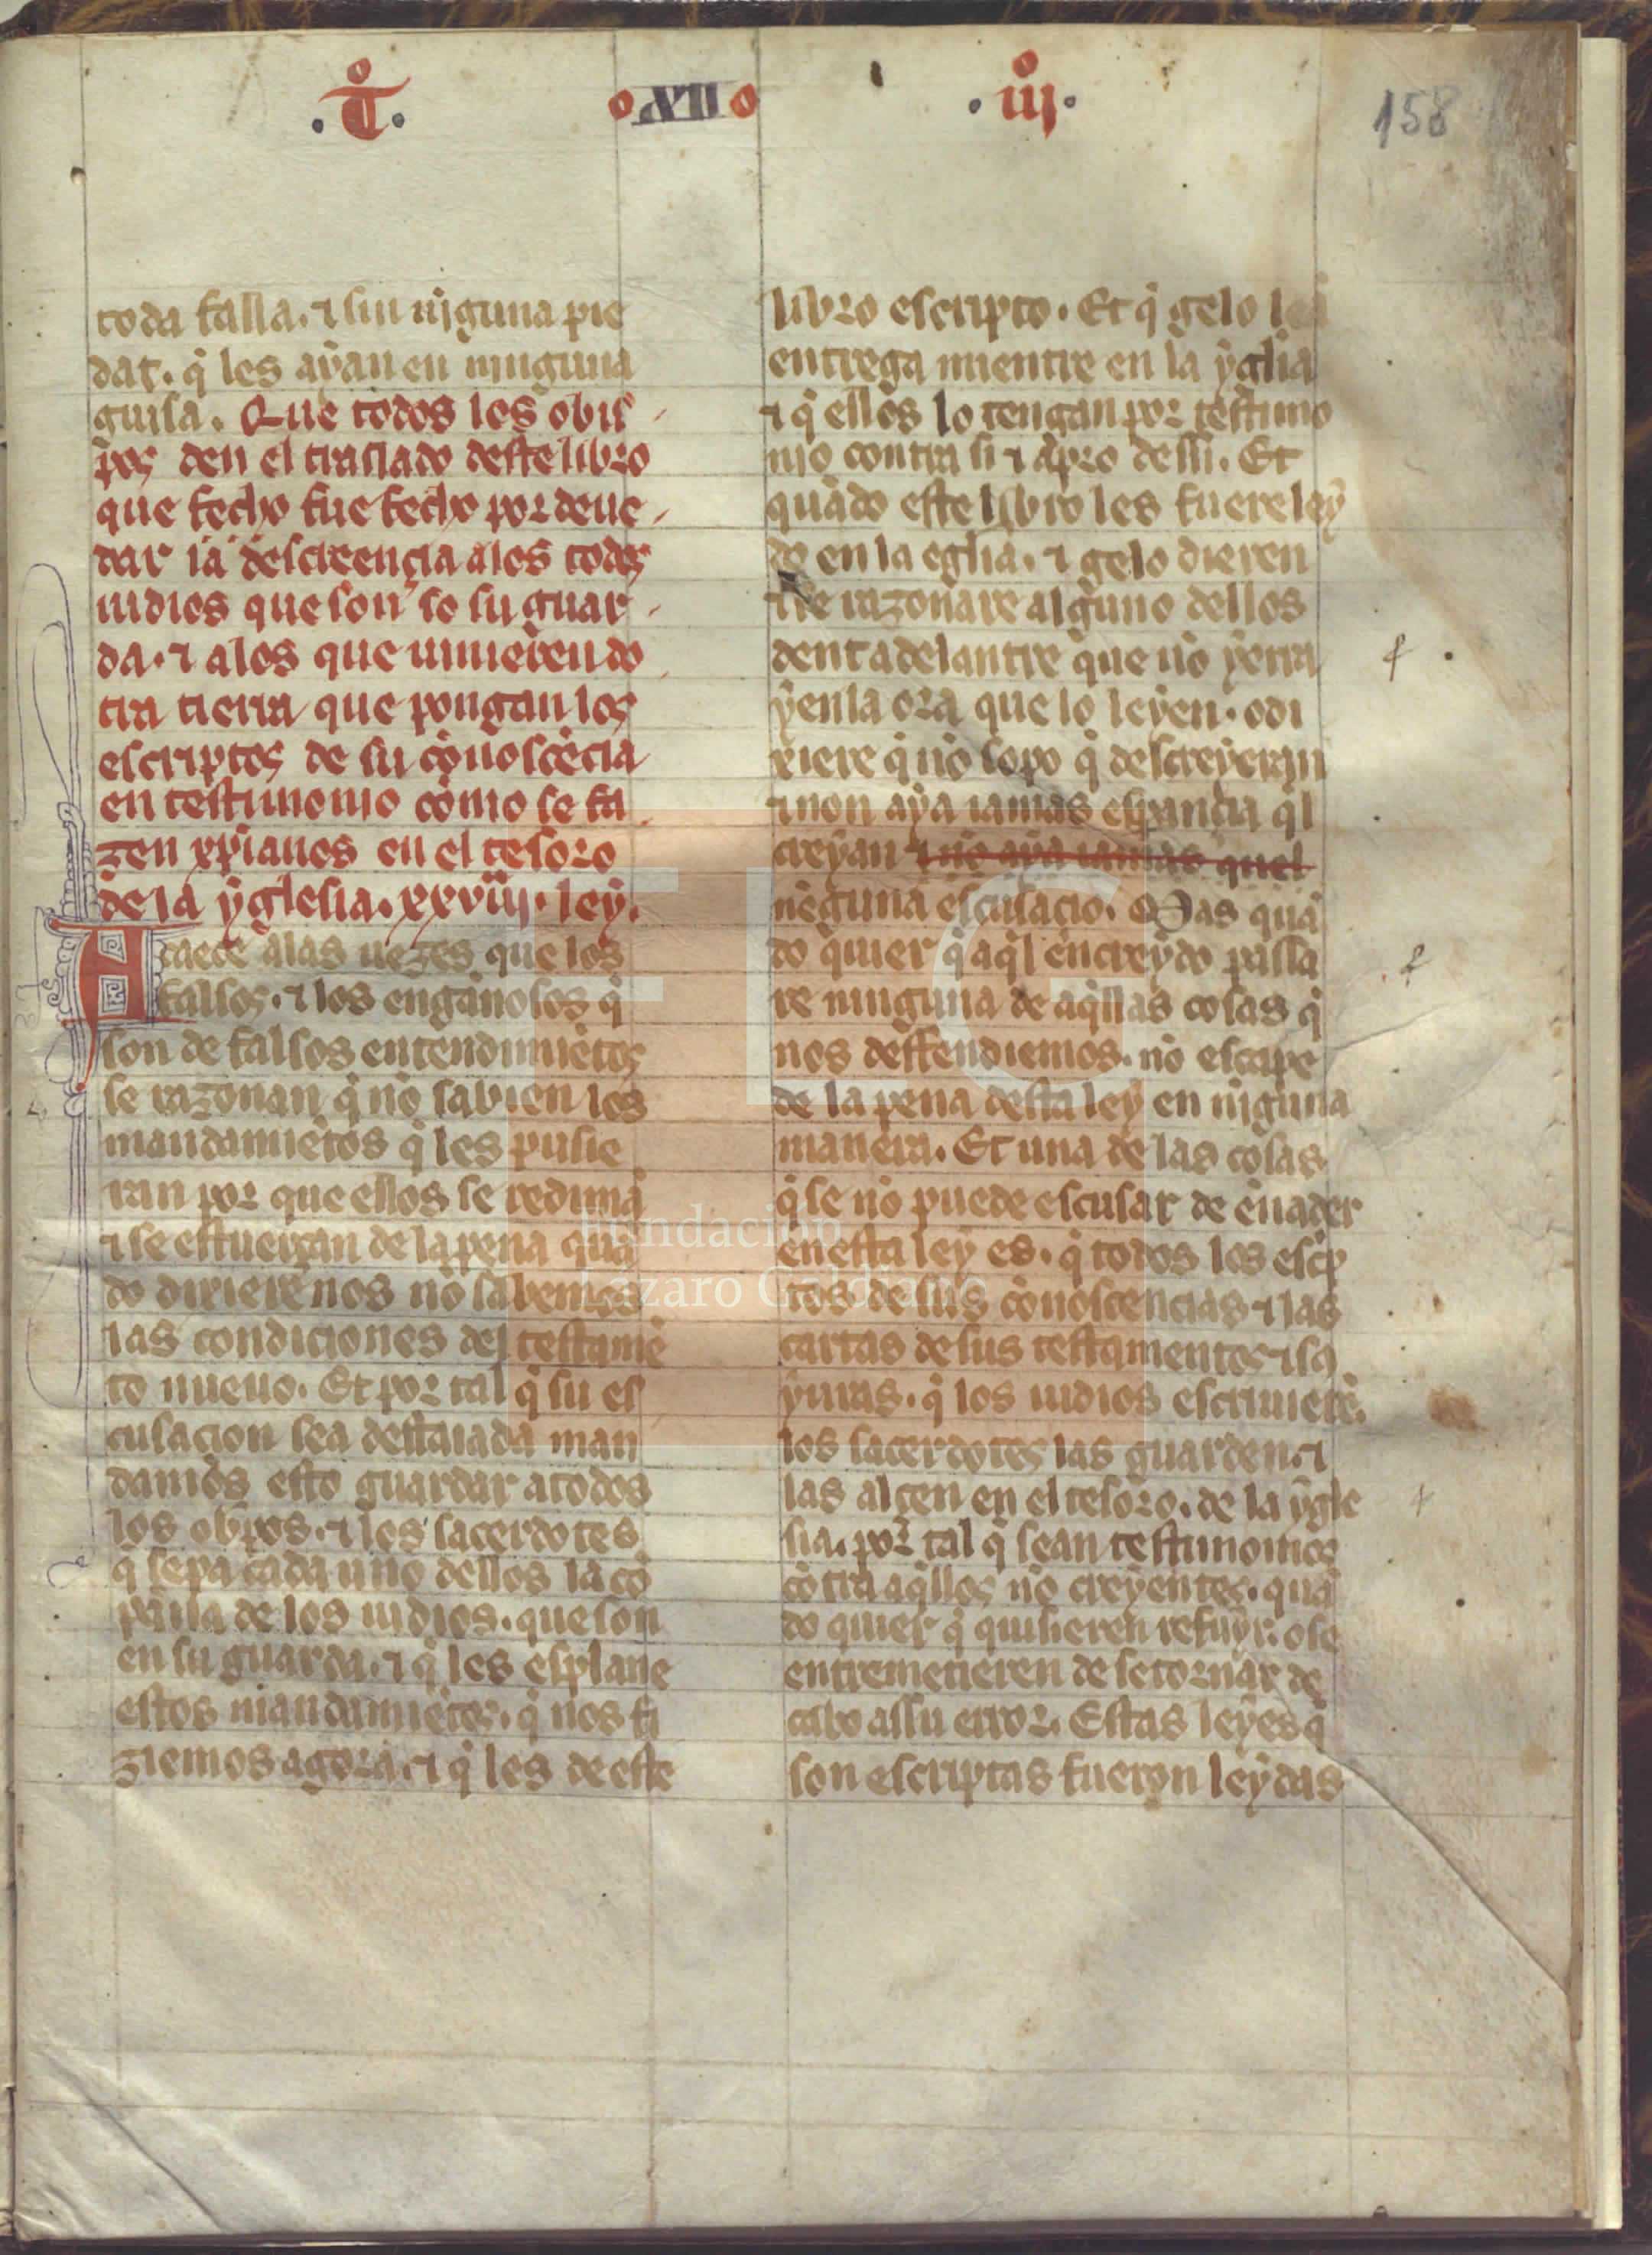 .T̊.
XII
.iij.
158
toda falla. ⁊ sin nỉguna pie
dat. q̉ les ayan en ninguna
guisa. Que todos los obis
pos den el traslado deste libro
que fecho fue fecho por deue
dar la descreencia alos todos
iudios que son so su guar
da. ⁊ alos que uinieren do
tra tierra que pongan los
escriptos de su cōnoscēcia
en testimonio cōmo se fa
zen xp̄ianos en el tesoro
de la yglesia. xxviij. ley.
Acaece alas uezes que los
falsos. ⁊ los engānosos q̉
son de falsos entendimiētos
se razonan q̉ nō sabien los
mandamiētos q̉ les pusie
ran por que ellos se redimā
⁊ se estuerçan de la pena quā
do dixierē nos nō sabemos
las condiciones del testamē
to nueuo. Et por tal q̉ su es
cusacion sea destaiada man
damos esto guardar atodos
los ob̄pos. ⁊ los sacerdotes
q̉ sepa cada uno dellos la cō
pāña de los iudios. que son
en su guarda. ⁊ q̉ les esplane
estos mandamiētos. q̉ nos fi
ziemos agora. ⁊ q̉ les de este
libro escripto. Et q̉ gelo
entrega mientre en la yglīa
⁊ q̉ ellos lo tengan por testimo
nio contra si ⁊ apro dessi. Et
quādo este libro les fuere ley
do en la eglīa. ⁊ gelo dieren
⁊ se razonare alguno dellos
dent adelantre que nō yerra
yen la ora que lo leyen. o di
xiere q̉ nō sopo q̉ descreyeran
⁊ non aya iamas esp̄ança q̉l
creyan ⁊ nō aya iamas quel
neguna escusaciō. Mas quā
do q̉uier q̉ aq̉l encreydo passa
re ninguna de aq̉llas cosas q̉
nos deffendiemos. nō escape
de la pena desta ley en nīguna
manera. Et una de las cosas
q̉ se nō puede escusar de ēnader
en esta ley es. q̉ todos los esc̉p
tos de sus cōnoscencias ⁊ las
cartas de sus testamentos ⁊ sq
yuras. q̉ los iudios escriuierē.
los sacerdotes las guarden. ⁊
las alcen en el tesoro. de la ygle
sia. por tal q̉ sean testimonios
cōtra aq̉llos nō creyentes. quā
do quier q̉ quisieren refuyr. o se
entremetieren de se tornar de
cabo assu error. Estas leyes q̉
son escriptas fueron leydas
Fundación
Lázaro Galdiano
FLG